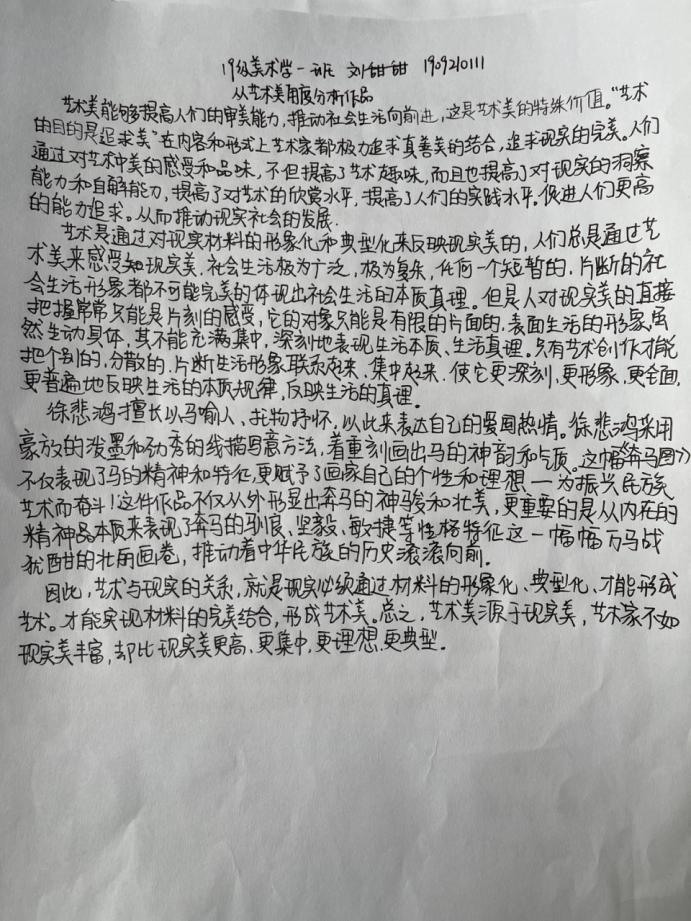 19级美术学一班 刘甜甜 1909210111
从艺术美角度分析作品
艺术美能够提高人们的审美能力，推动社会生活向前进，这是艺术美的特殊价值。“艺术
的目的是追求美”在内容和形式上艺术家都极力追求真善美的结合，追求现实的完美。人们
通过对艺术中美的感受和品味，不但提高了艺术趣味，而且也提高了对现实的洞察
能力和自解能力，提高了对艺术的欣赏水平，提高了人们的实践水平。促进人们更高
的能力追求。从而推动现实社会的发展.
艺术是通过对现实材料的形象化和典型化来反映现实美的，人们总是通过艺
术美来感受知现实美.社会生活极为广泛，极为复杂，任何一个短暂的.片断的社
会生活形象都不可能完美的体现出社会生活的本质真理。但是人对现实美的直接
把握常常只能是片刻的感受，它的对象只能是有限的片面的.表面生活的形象.虽
然生动具体，其不能充满集中，深刻地表现生活本质、生活真理。只有艺术创作才能
把个别的，分散的.片断生活形象联系起来.集中起来.使它更深刻.更形象，更全面.
更普遍地反映生活的本质规律，反映生活的真理。
徐悲鸿擅长以马喻人、托物抒怀.以此来表达自己的爱国热情。徐悲鸿采用
豪放的泼墨和劲秀的线描写意方法，着重刻画出马的神韵和气质。这幅《奔马图》
不仅表现了马的精神和特征，更赋予了画家自己的个性和理想一为振兴民族
艺术而奋斗！这件作品不仅从外形显出奔马的神骏和壮美，更重要的是从内在的
精神品本质来表现了奔马的驯良、坚毅、敏捷等性格特征这一幅幅万马战
犹酣的壮丽画卷，推动着中华民族的历史滚滚向前.
因此，艺术与现实的关系，就是现实必须通过材料的形象化、典型化、才能形成
艺术。才能实现材料的完美结合，形成艺术美。总之，艺术美源于现实美，艺术家不如
现实美丰富，却比现实美更高、更集中，更理想.更典型.